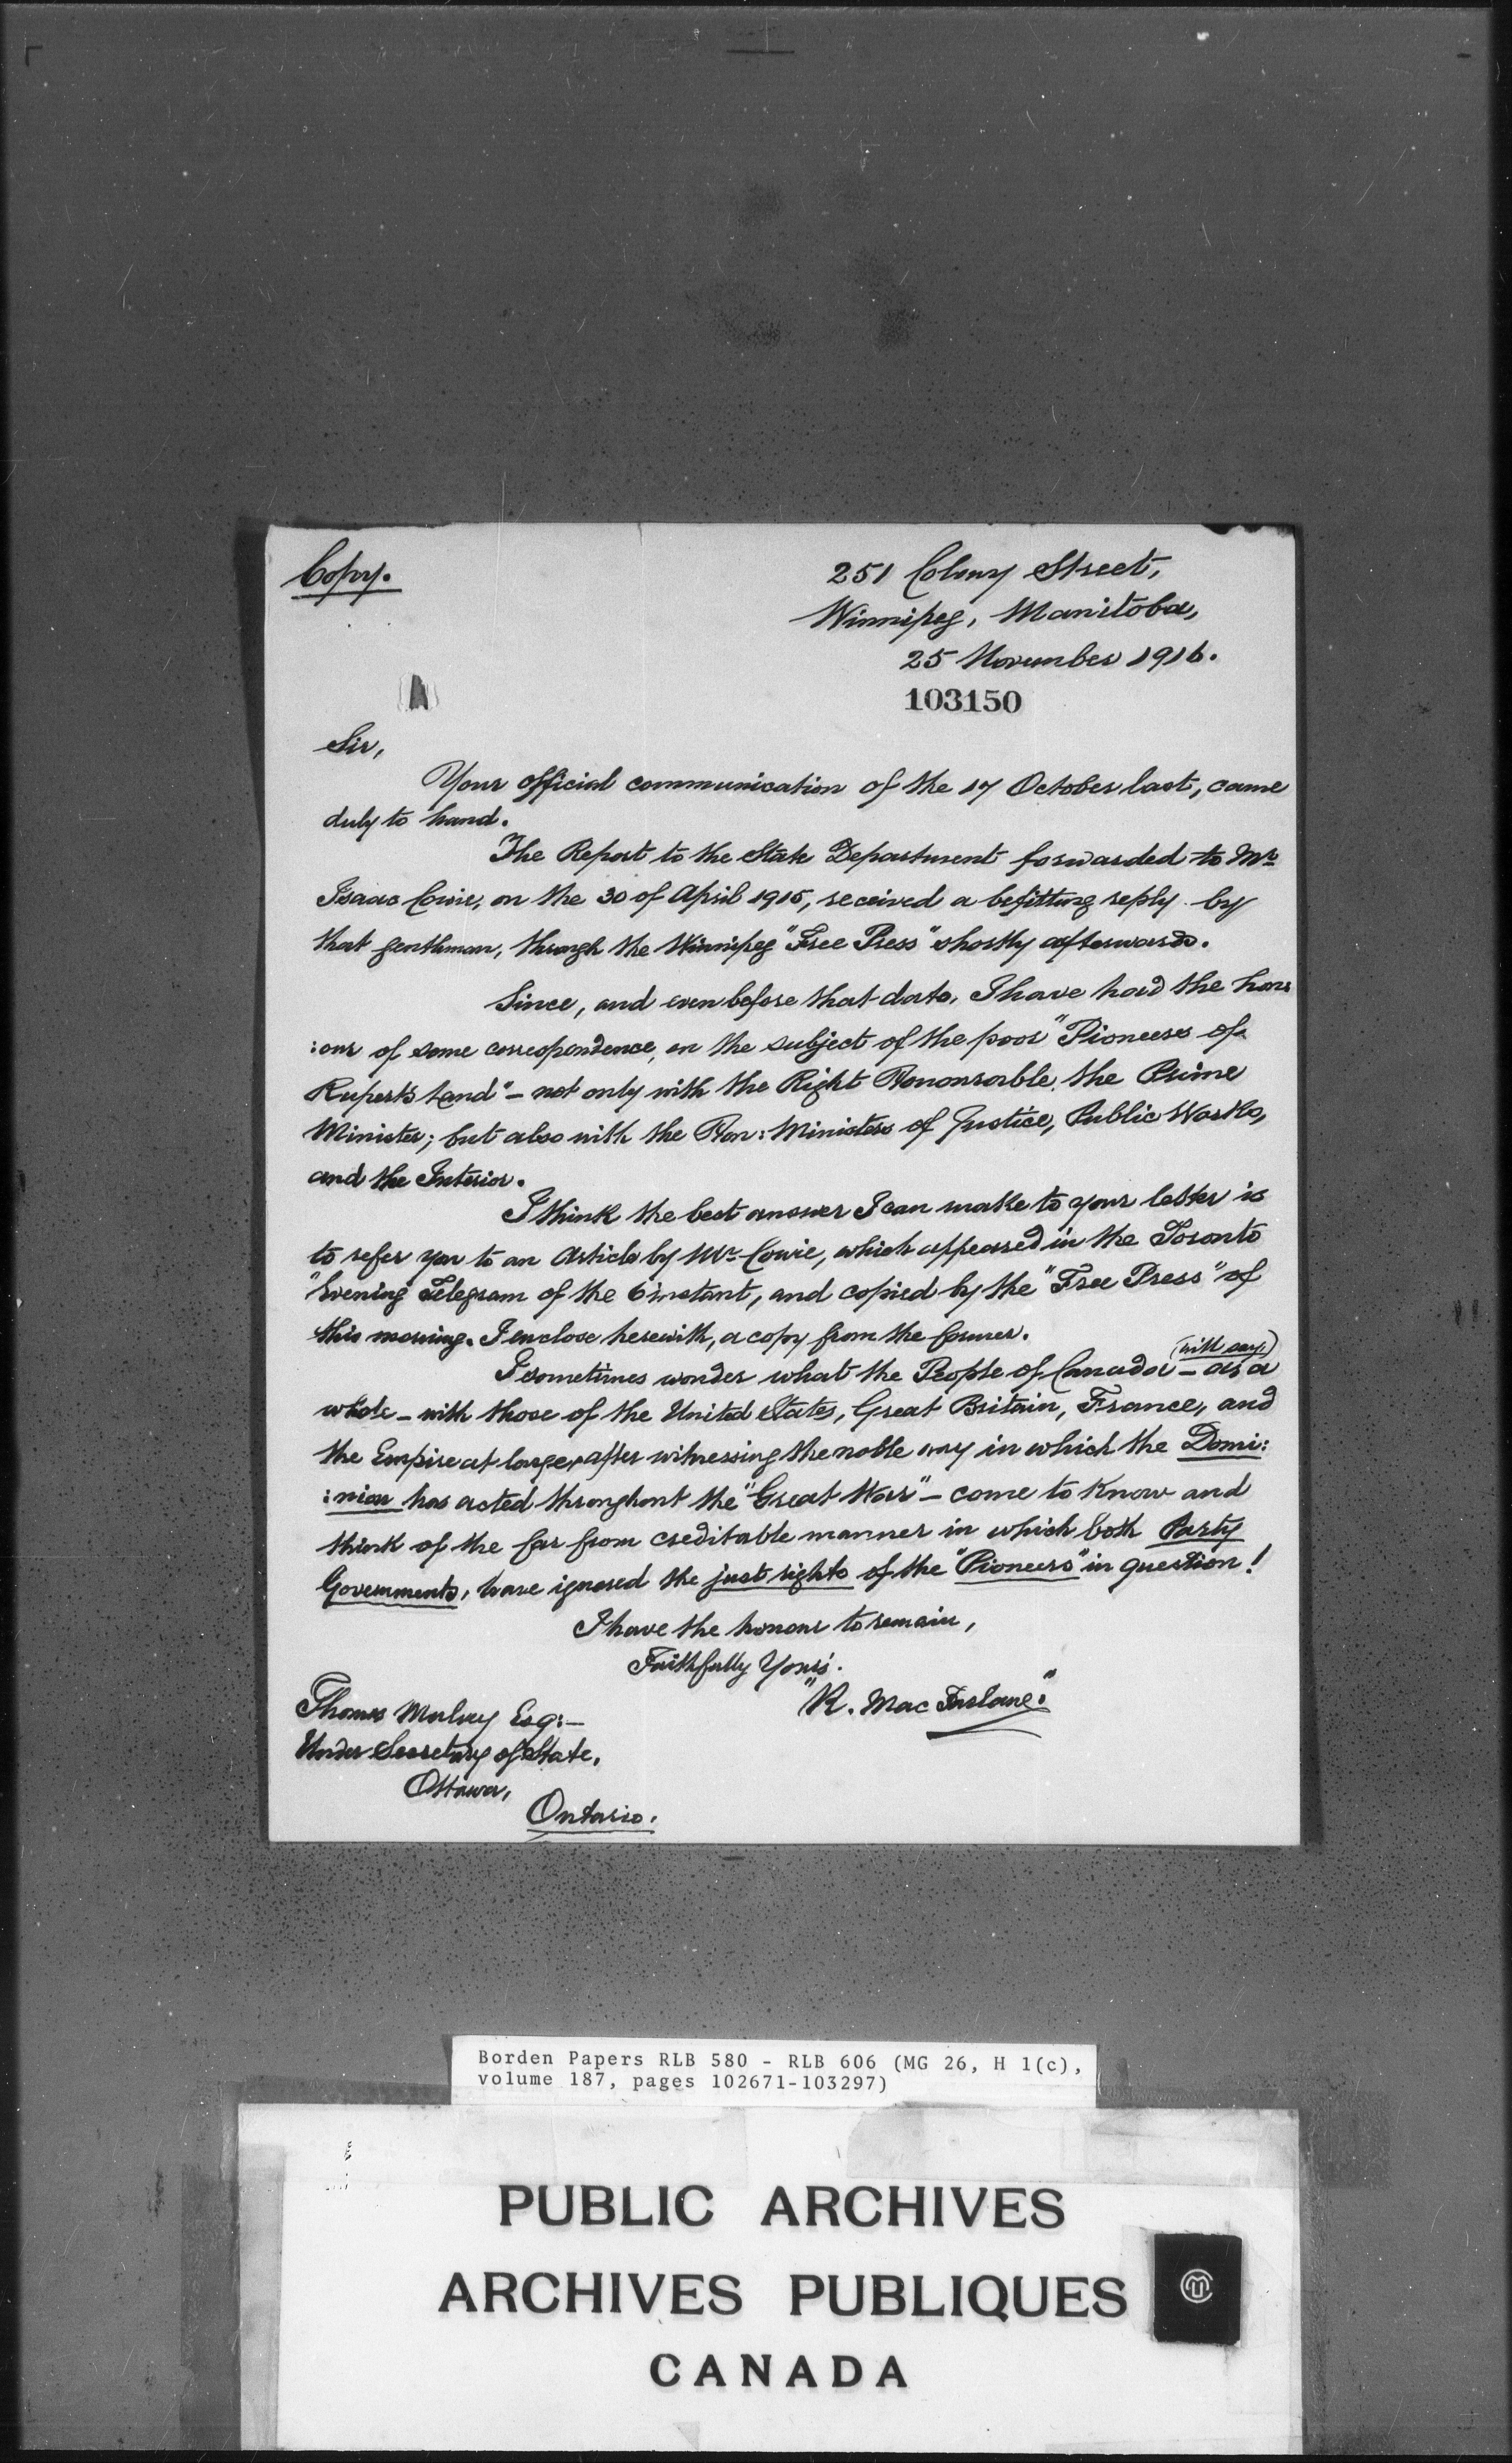 Copy.
251 Colony Street,
Winnipeg, Manitoba,
25 November 1916.
103150
Sir,
Your official communication of the 17 October last, came
duly to hand.
The Report to the State Department forwarded to Mr
Isaac Cowie, on the 30 of April 1915, received a befitting reply by
that gentleman, through the Winnipeg "Free Press" shortly afterwards.
Since, and even before that date, I have had the hon:
:our of some correspondence, on the subject of the poor "Pioneers of
Rupert's Land" – not only with the Right Honourable, the Prime
Minister; but also with the Hon: Ministers of Justice, Public Works,
and the Interior.
I think the best answer I can make to your letter is
to refer you to an Article by Mr. Cowie, which appeared in the Toronto
"Evening Telegram of the 6 instant, and copied by the "Free Press" of
this morning. I enclose herewith, a copy from the former.
(will say)
I sometimes wonder what the People of Canada – as a
whole – with those of the United States, Great Britain, France, and
the Empire at large, after witnessing the noble way in which the Domi:
:nion has acted throughout the "Great War" – come to know and
think of the far from creditable manner in which both Party
Governments, have ignored the just rights of the "Pioneers" in question!
I have the honour to remain,
Faithfully Yours.
"R. Mac Farlane."
Thomas Mulvey Esq:–
Under Secretary of State,
Ottawa,
Ontario.
Borden Papers RLB 580 - RLB 606 (MG 26, H 1(c),
volume 187, pages 102671-103297)
PUBLIC ARCHIVES
ARCHIVES PUBLIQUES
CANADA